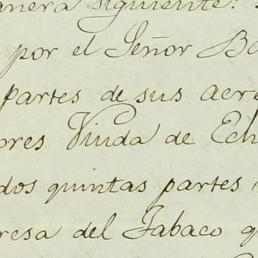 anera siguiente:
por el Señor Ba
partes de sus acre
ores Viuda de Ech
dos quintas partes
resa del Tabaco q